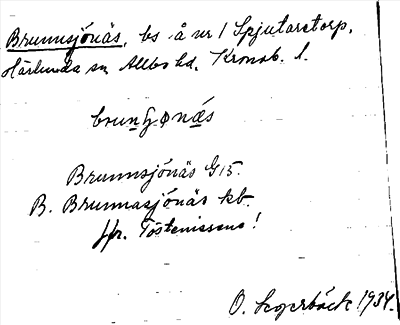 Brunnsjönäs, bs å nr 1 Spjutaretorp,
Härlunda sn Allbo hd, Kronob. l.
Brunnsjönäs G15.
B. Brunnasjönäs kb.
jfr. Töstenissens!
O. Lagerbäck 1934.